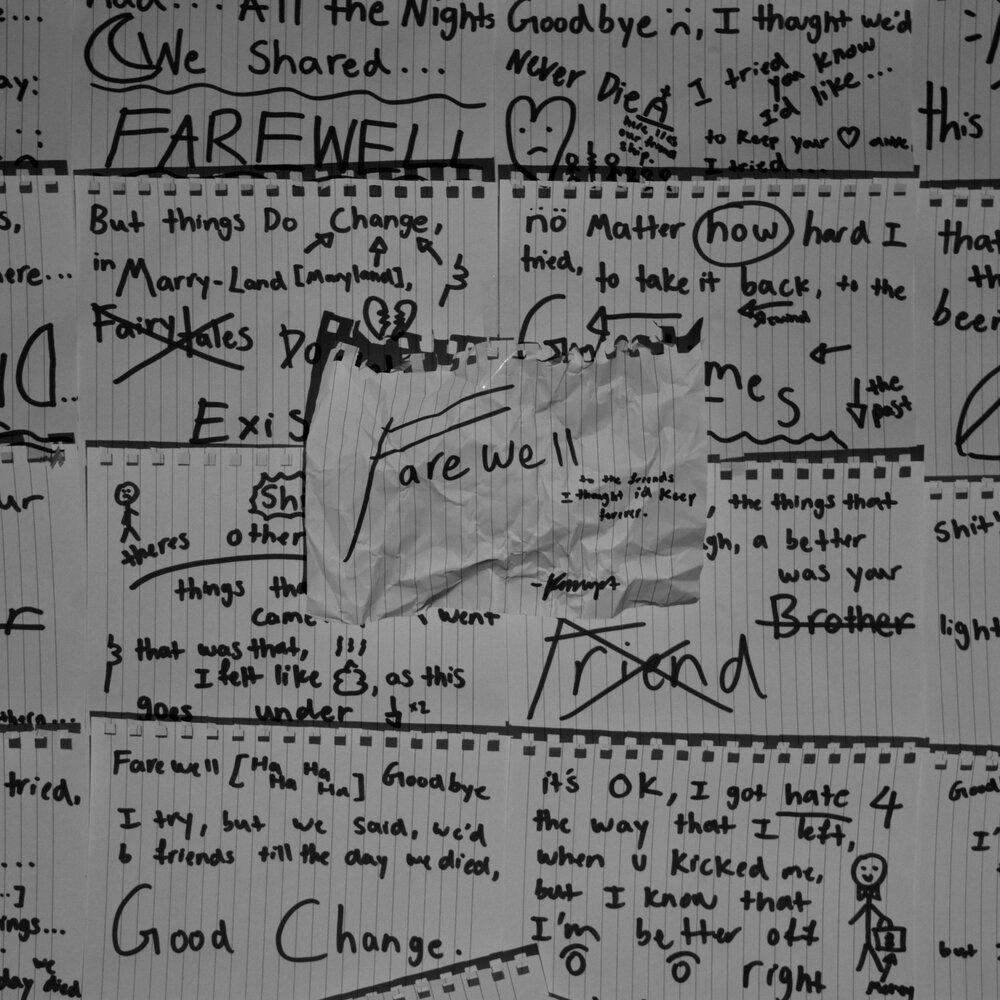 All the Nights
We Shared...
FAREWELL
Goodbye :(, I thought we'd
Never Die
I tried
you know
I'd like...
to keep your ♡ awe
I tried....
this
ay:
But things Do Change,
in Marry-Land [Maryland], &
Fairytales
Do
Exis
no Matter how hard I
tried, to take it back, to the
rewind
mes
the
past
s,
ere...
that
th
been
Farewell
to the friends
I thought i'd keep
forever.
theres other
things tha
came
I went
& that was that,
I felt like , as this
goes under ↓ x2
, the things that
gh, a better
was your
Brother
Friend
ur
r
shit
light
Farewell [Ha Ha
Ha Ha] Goodbye
I try, but we said, we'd
b friends till the day we died,
Good Change.
it's OK, I got hate 4
the way that I left,
when u kicked me,
but I know that
I'm better off
right
money
tried,
ings...
we
day died
Good
I'
but